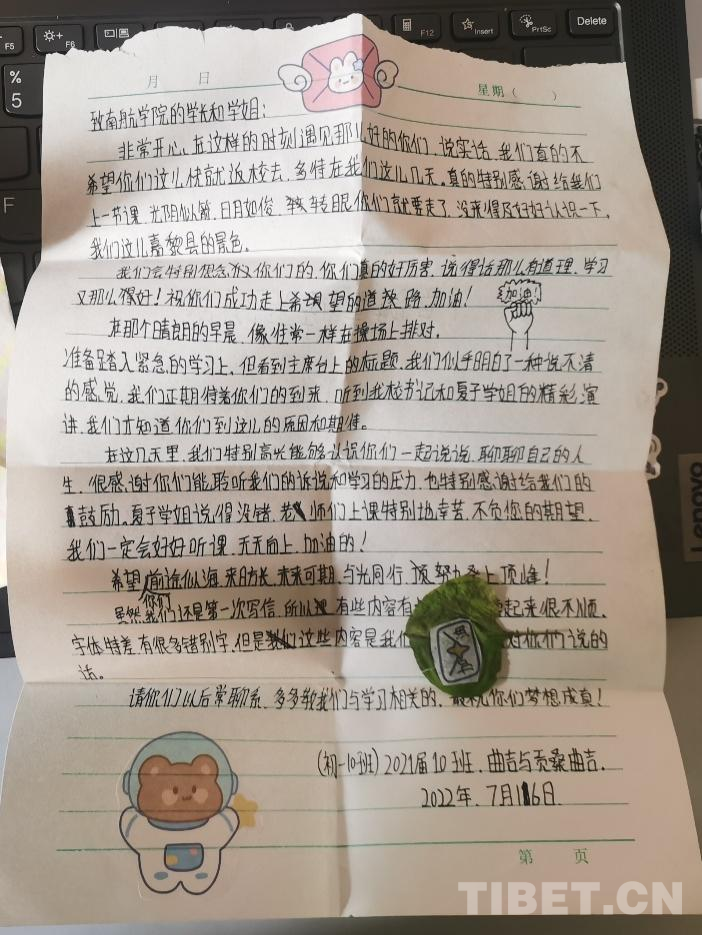 F5
F6
F12
Insert
PrtSc
Delete
%
5
F
Lenovo
月 日
星期（ ）
致南航学院的学长和学姐：
非常开心，在这样的时刻遇见那么好的你们，说实话，我们真的不
希望你们这么快就返校去，多待在我们这儿几天。真的特别感谢给我们
上一节课，光阴似箭，日月如俊，转眼你们就要走了，没来得及好好认识一下，
我们这儿嘉黎县的景色。
我们会特别想念你们的，你们真的好厉害，说得话那么有道理，学习
又那么得好！祝你们成功走上希望的道路，加油！
加油!
在那个晴朗的早晨，像往常一样在操场上排对，
准备踏入紧急的学习上，但看到主席台上的标题，我们似乎明白了一种说不清
的感觉，我们正期待着你们的到来，听到我校书记和夏子学姐的精彩演
讲，我们才知道你们到这儿的原因和期待。
在这几天里，我们特别高兴能够认识你们一起说说，聊聊自己的人
生，很感谢你们能聆听我们的诉说和学习的压力，也特别感谢给我们的
鼓励。夏子学姐说得没错，老师们上课特别地幸苦，不负您的期望，
我们一定会好好听课，天天向上，加油的！
希望你们前途似海，来日方长，未来可期，与光同行，努力登上顶峰！
虽然我们还是第一次写信，所以有些内容有 起来很不顺，
字体特差，有很多错别字，但是这些内容是我们 对你们说的
话。
请你们以后常聊系，多多教我们与学习相关的，最祝你们梦想成真！
（初一10班）2021届10班，曲吉与贡桑曲吉．
2022年．7月16日
第 页
TIBET.CN